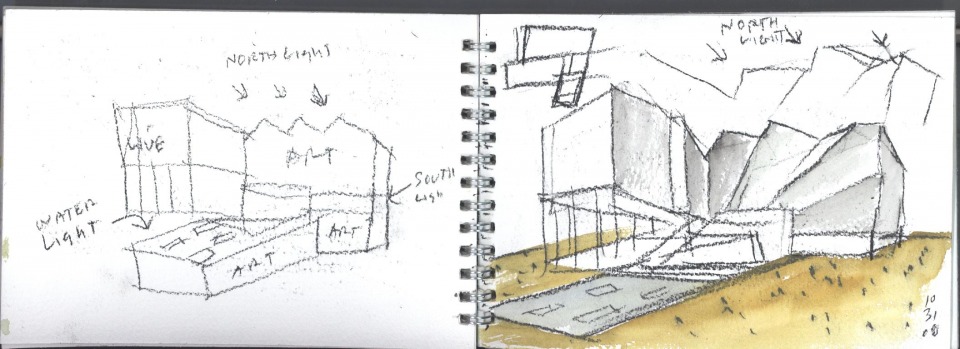 NORTH LIGHT
LIVE
ART
SOUTH
Light
WATER
Light
ART
ART
NORTH
LIGHT
10
31
08